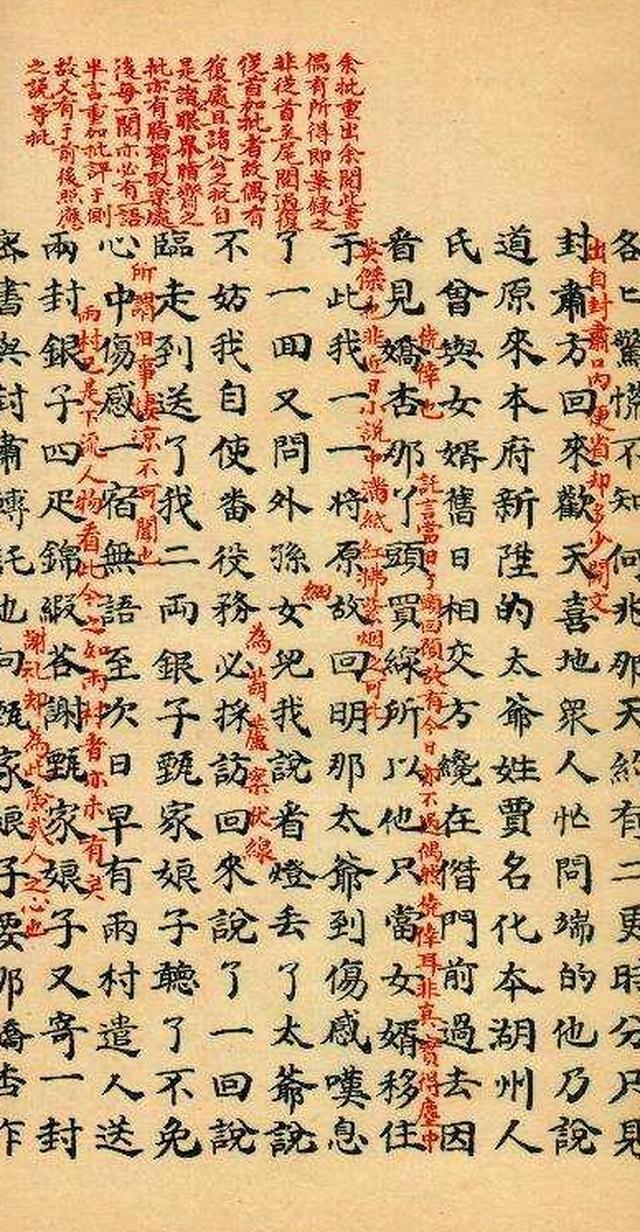 余批重出余閱此書
偶有所得即筆錄之
非從首至尾閱過復
從首加批者故偶有
復處且諸公之批自
是諸眼界脂齋之
批亦有脂齋取樂處
後每一閱亦必有一語
半言重加批評于側
故又有于前後照應
之說等批
各匕驚慌不知何兆那天約有二更時分只見
出自封肅口內便省却多少閒文
封肅方回來歡天喜地眾人忙問端的他乃說
道原來本府新陞的太爺姓賈名化本湖州人
氏曾與女婿舊日相交方纔在偺門前過去因
僥倖也
託言當日丫頭回顧故有今日亦不過偶然僥倖耳非真實得塵中
看見嬌杏那丫頭買線所以他只當女婿移住
英傑也非近日小說中滿紙紅拂紫烟之可比
于此我一一將原故回明那太爺到傷感嘆息
細
了一回又問外孫女兒我說看燈丟了太爺說
為葫蘆案伏線
不妨我自使番役務必採訪回來說了一回說
臨走到送了我二兩銀子甄家娘子聽了不免
所謂旧事凄凉不可聞也
心中傷感一宿無語至次日早有雨村遣人送
雨村已是下流人物看此今之如雨村者亦未有矣
兩封銀子四疋錦緞答謝甄家娘子又寄一封
謝礼却為此險哉人之心也
密書與封肅轉託他向甄家娘子要那嬌杏作